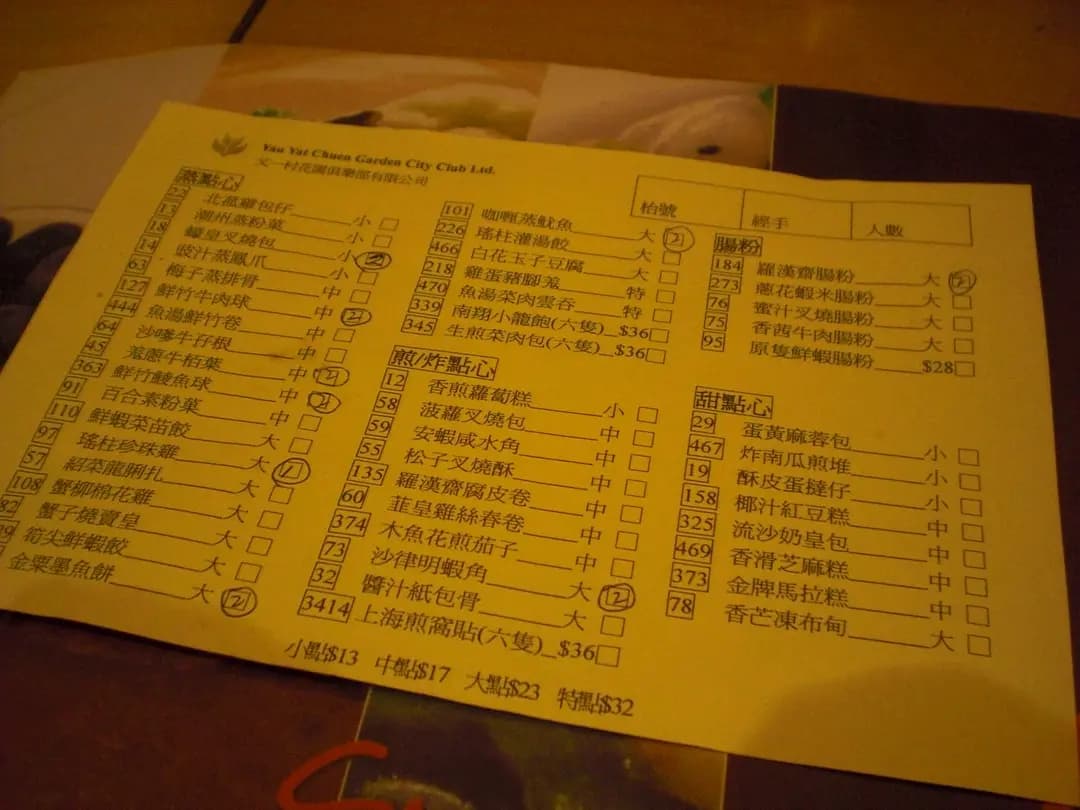 Yau Yat Chuen Garden City Club Ltd.
又一村花園俱樂部有限公司
枱號 經手 人數
蒸點心
22 北菰雞包仔 小
13 潮州蒸粉菓 小
18 蠔皇叉燒包 小
14 豉汁蒸鳳爪 小
63 梅子蒸排骨 中
127 鮮竹牛肉球 中
444 魚湯鮮竹卷 中
64 沙嗲牛仔根 中
45 蔥牛栢葉 中
363 鮮竹鯪魚球 中
91 百合素粉菓 中
110 鮮蝦菜苗餃 大
97 瑤柱珍珠雞 大
57 紹菜龍脷扎 大
108 蟹柳棉花雞 大
82 蟹子燒賣皇 大
筍尖鮮蝦餃 大
金粟墨魚餅 大
101 咖喱蒸魷魚 大
226 瑤柱灌湯餃 大
466 白花玉子豆腐 大
218 雞蛋豬腳羌 特
470 魚湯菜肉雲吞 特
339 南翔小龍飽(六隻) $36
345 生煎菜肉包(六隻) $36
煎/炸點心
12 香煎蘿蔔糕 小
58 菠蘿叉燒包 中
59 安蝦咸水角 中
55 松子叉燒酥 中
135 羅漢齋腐皮卷 中
60 韮皇雞絲春卷 中
374 木魚花煎茄子 中
73 沙律明蝦角 大
32 醬汁紙包骨 大
3414 上海煎窩貼(六隻) $36
腸粉
184 羅漢齋腸粉 大
273 蔥花蝦米腸粉 大
76 蜜汁叉燒腸粉 大
75 香茜牛肉腸粉 大
95 原隻鮮蝦腸粉 $28
甜點心
29 蛋黃麻蓉包 小
467 炸南瓜煎堆 小
19 酥皮蛋撻仔 小
158 椰汁紅豆糕 中
325 流沙奶皇包 中
469 香滑芝麻糕 中
373 金牌馬拉糕 中
78 香芒凍布甸 大
小點$13 中點$17 大點$23 特點$32